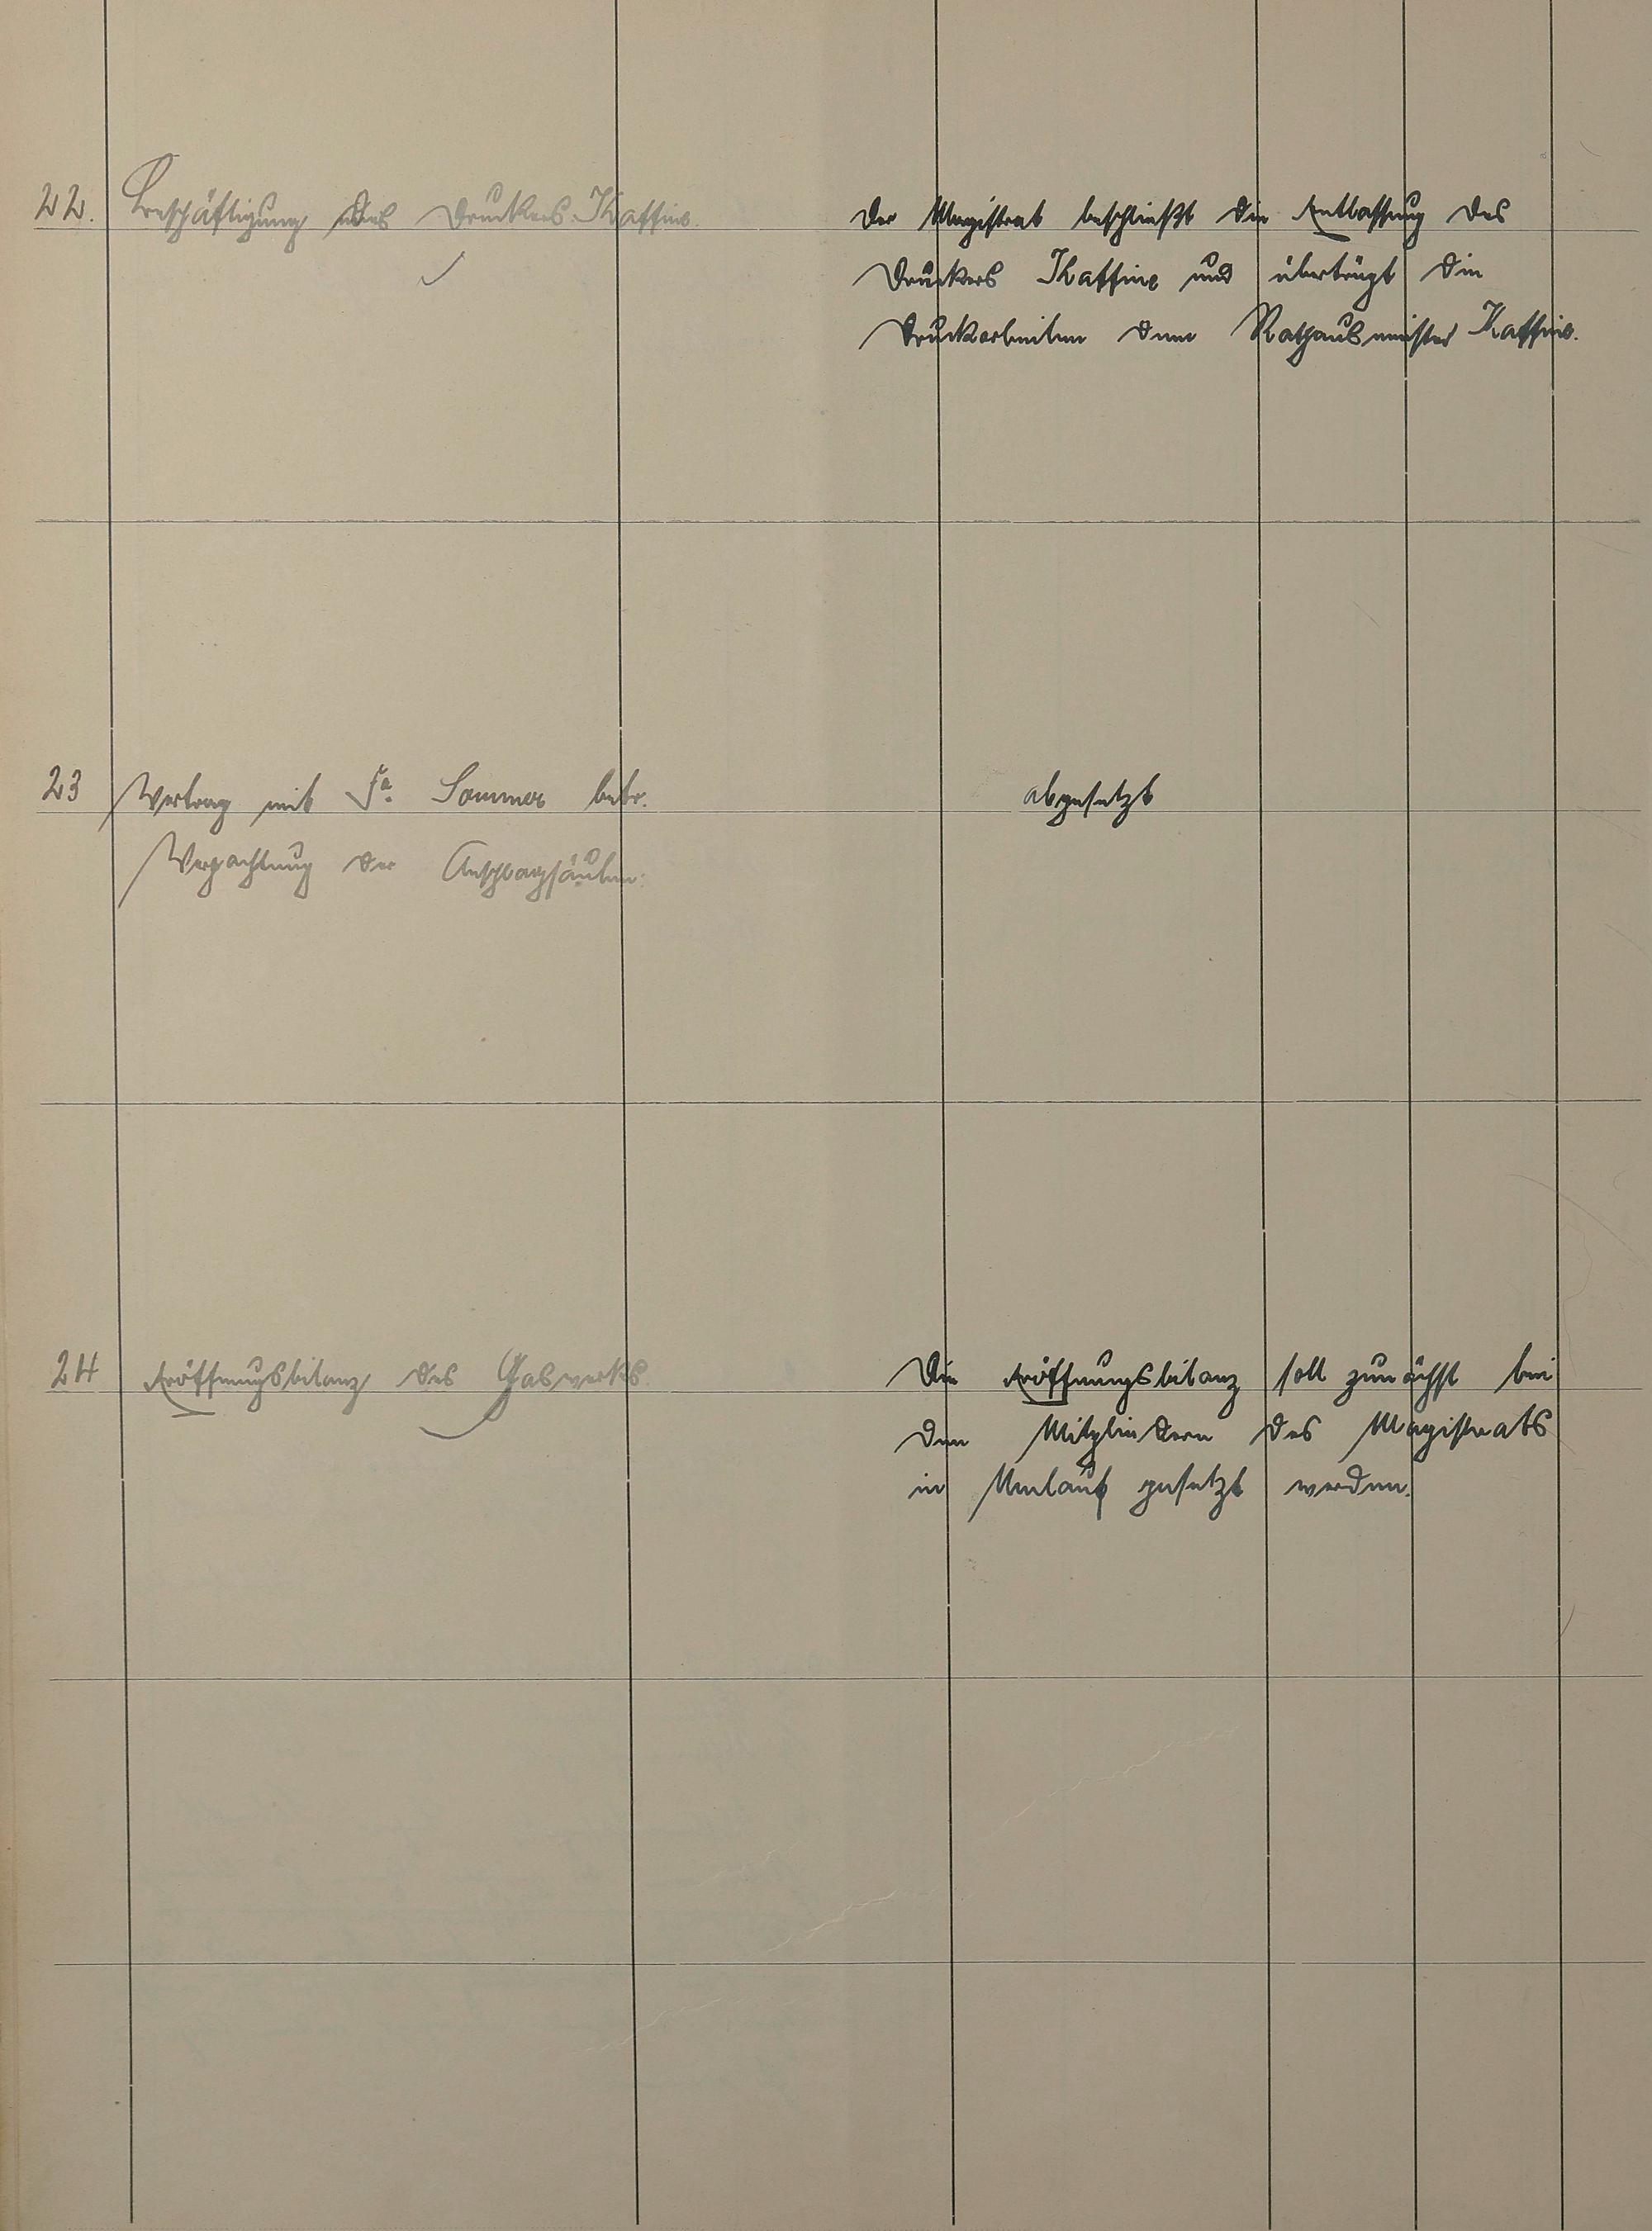 22. Beschäftigung des Druckers Kaffine.
Der Magistrat beschließt die Entlassung des
Druckers Kaffine und überträgt die
Druckarbeiten dem Rathausmeister Kaffine.
23 Vertrag mit Fa. Sommer betr.
Verpachtung der Anschlagsäulen.
abgesetzt
24 Eröffnungsbilanz des Gaswerks.
Die Eröffnungsbilanz soll zunächst bei
den Mitgliedern des Magistrats
in Umlauf gesetzt werden.